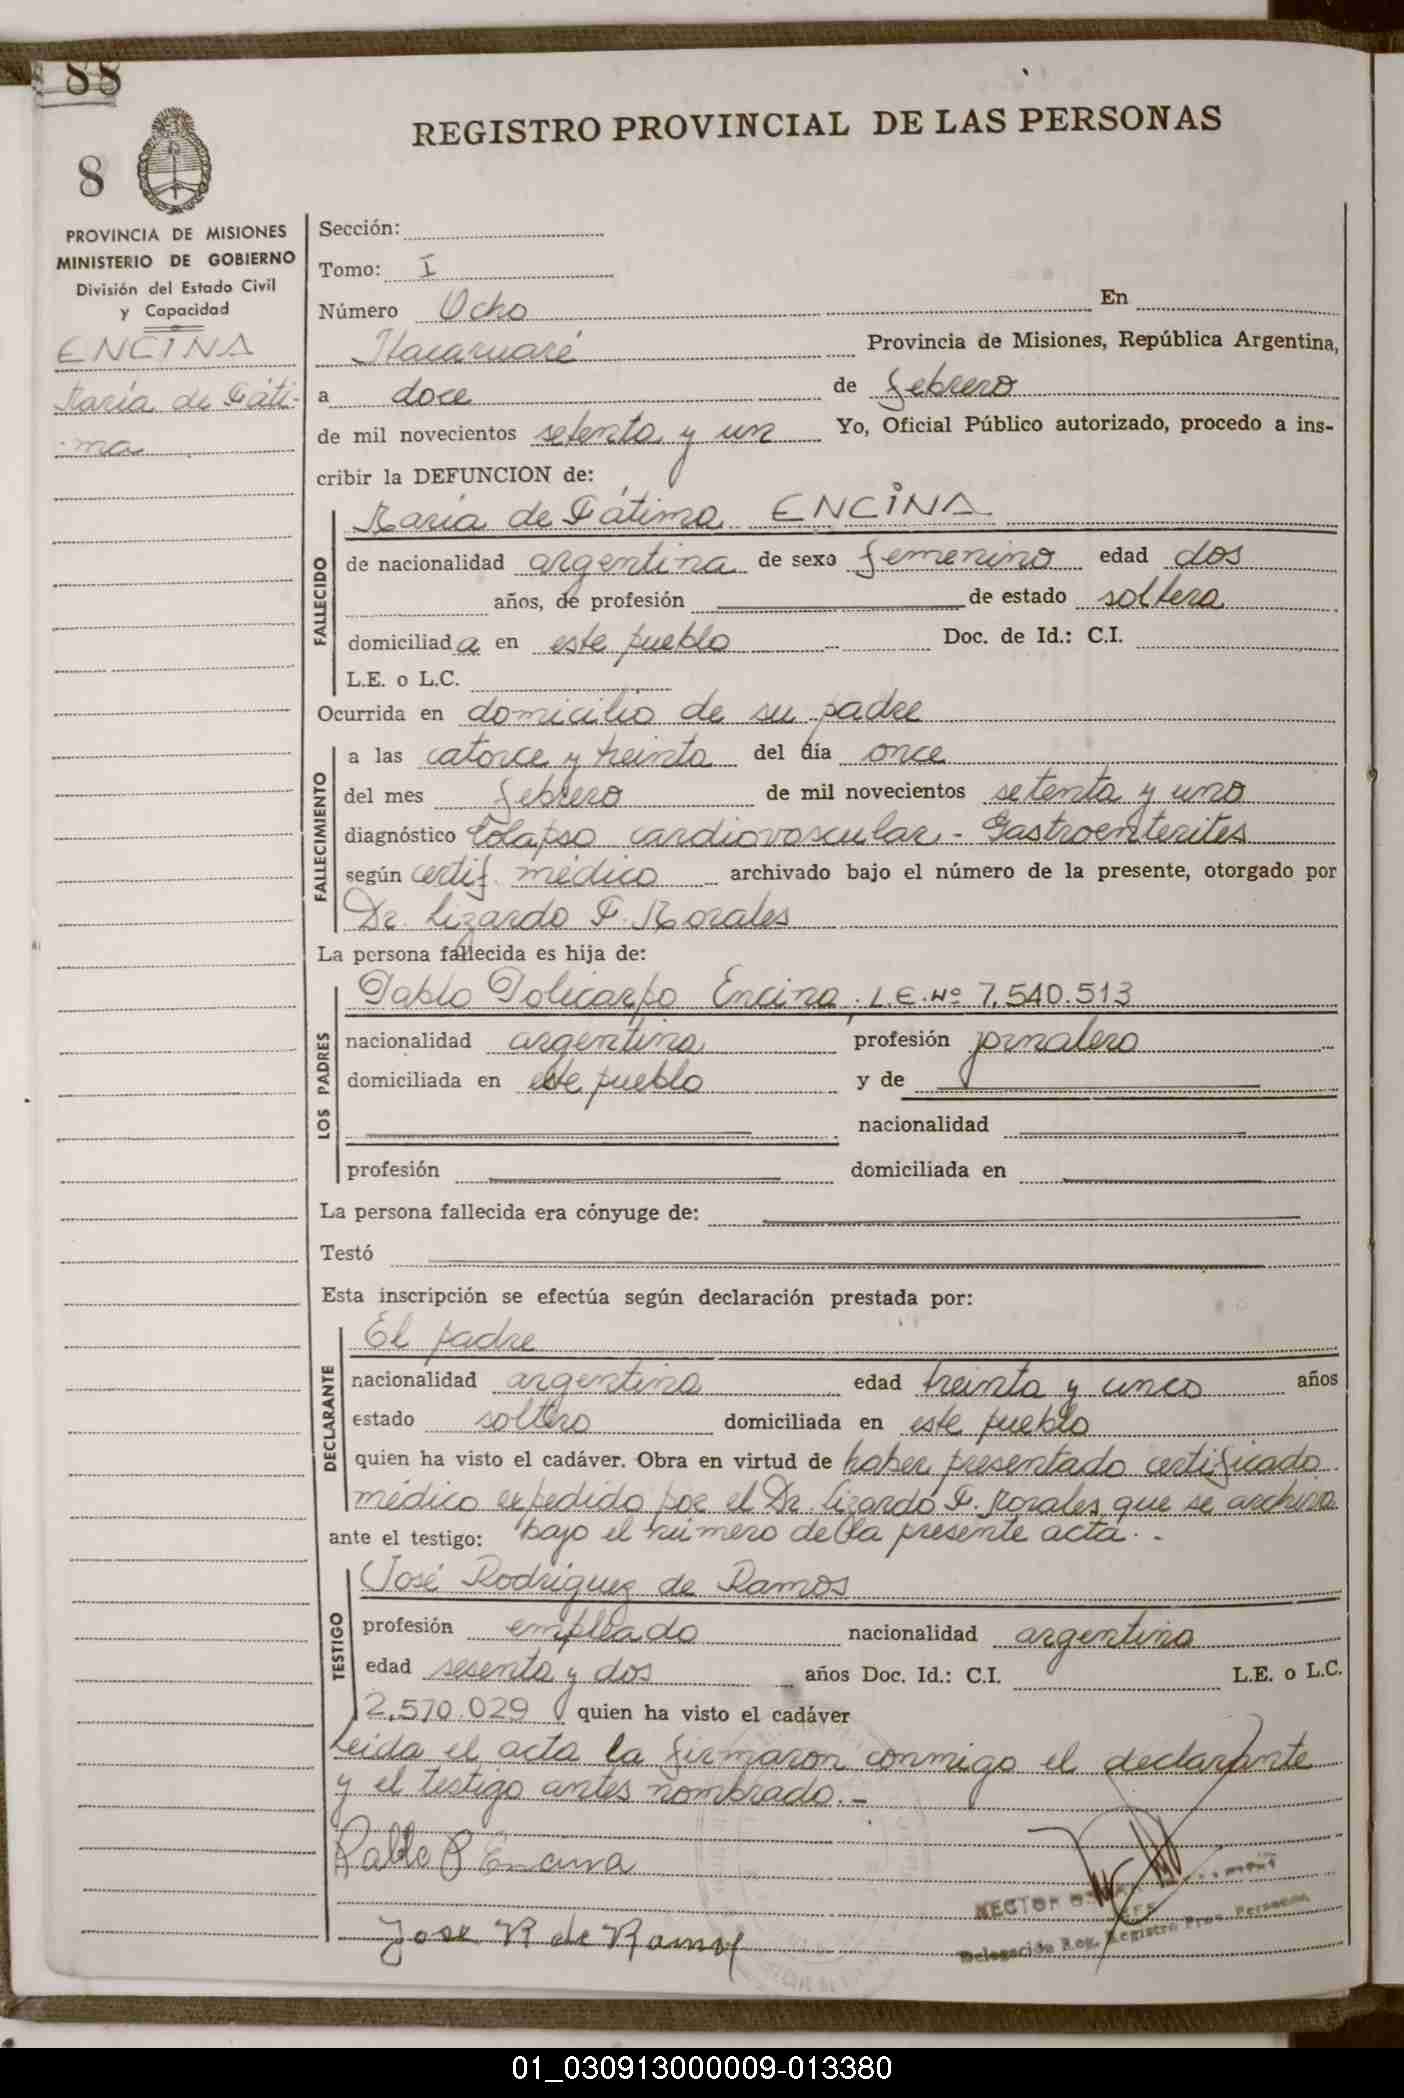 88
REGISTRO PROVINCIAL DE LAS PERSONAS
8
PROVINCIA DE MISIONES
MINISTERIO DE GOBIERNO
División del Estado Civil
y Capacidad
ENCINA
María de Fáti-
-ma
Sección:
Tomo: I
Número Ocho En
Itacaruaré Provincia de Misiones, República Argentina,
a doce de febrero
de mil novecientos setenta y un Yo, Oficial Público autorizado, procedo a ins-
cribir la DEFUNCION de:
FALLECIDO
María de Fátima ENCINA
de nacionalidad argentina de sexo femenino edad dos
años, de profesión de estado soltera
domiciliada en este pueblo Doc. de Id.: C.I.
L.E. o L.C.
Ocurrida en domicilio de su padre
FALLECIMIENTO
a las catorce y treinta del día once
del mes febrero de mil novecientos setenta y uno
diagnóstico Colapso cardiovascular - Gastroenterites
según certif. médico archivado bajo el número de la presente, otorgado por
Dr. Lizardo F. Morales
La persona fallecida es hija de:
LOS PADRES
Pablo Policarpo Encina, L.E.Nº 7.540.513
nacionalidad argentina profesión jornalero
domiciliada en este pueblo y de
nacionalidad
profesión domiciliada en
La persona fallecida era cónyuge de:
Testó
Esta inscripción se efectúa según declaración prestada por:
DECLARANTE
El padre
nacionalidad argentina edad treinta y cinco años
estado soltero domiciliada en este pueblo
quien ha visto el cadáver. Obra en virtud de haber presentado certificado
médico expedido por el Dr. Lizardo F. Morales que se archiva
ante el testigo: bajo el número de la presente acta.-
TESTIGO
José Rodríguez de Ramos
profesión empleado nacionalidad argentina
edad sesenta y dos años Doc. Id.: C.I. L.E. o L.C.
2.570.029 quien ha visto el cadáver
Leida el acta la firmaron conmigo el declarante
y el testigo antes nombrado.-
Pablo P Encina
Jose R de Ramos
HECTOR
JEFE
Delegación Reg. Registro Prov. Personas
01_030913000009-013380